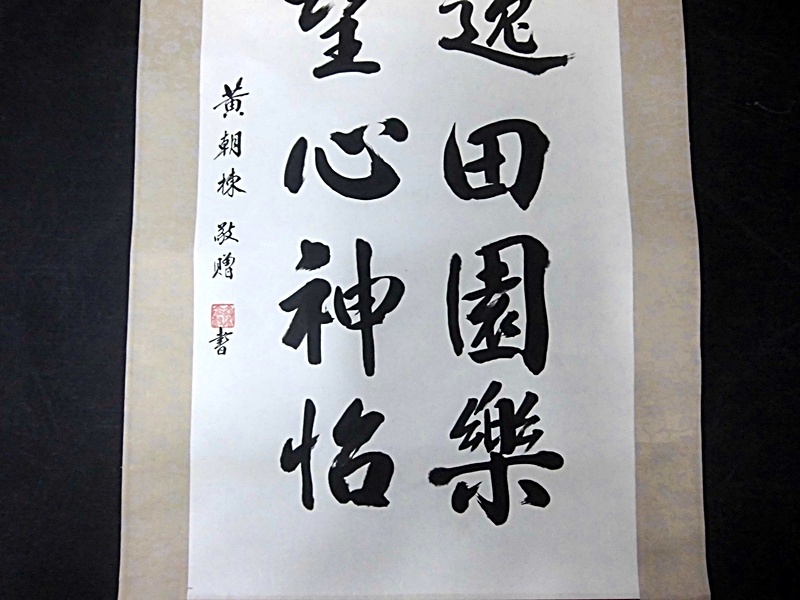 逸田園樂
望心神怡
黃朝棟 敬贈
書